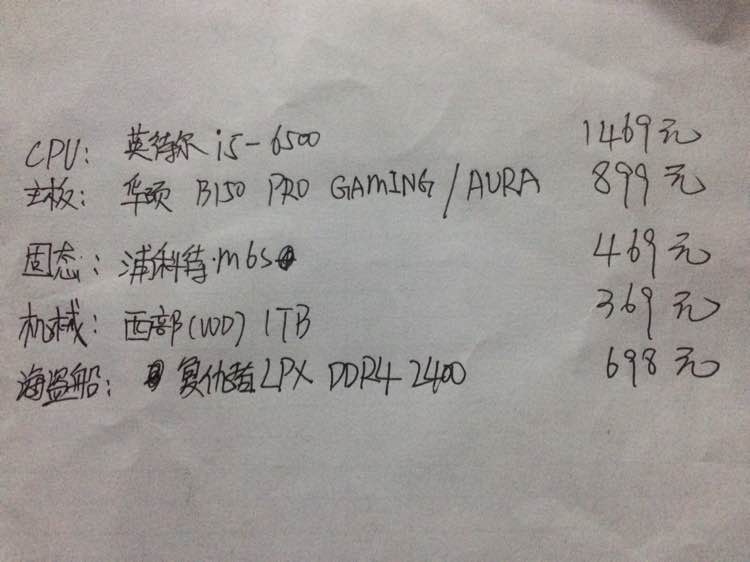 CPU: 英特尔 i5-6500 1469元
主板: 华硕 B150 PRO GAMING/AURA 899元
固态: 浦科特·M6S 469元
机械: 西部(WD) 1TB 369元
海盗船: 复仇者LPX DDR4 2400 698元